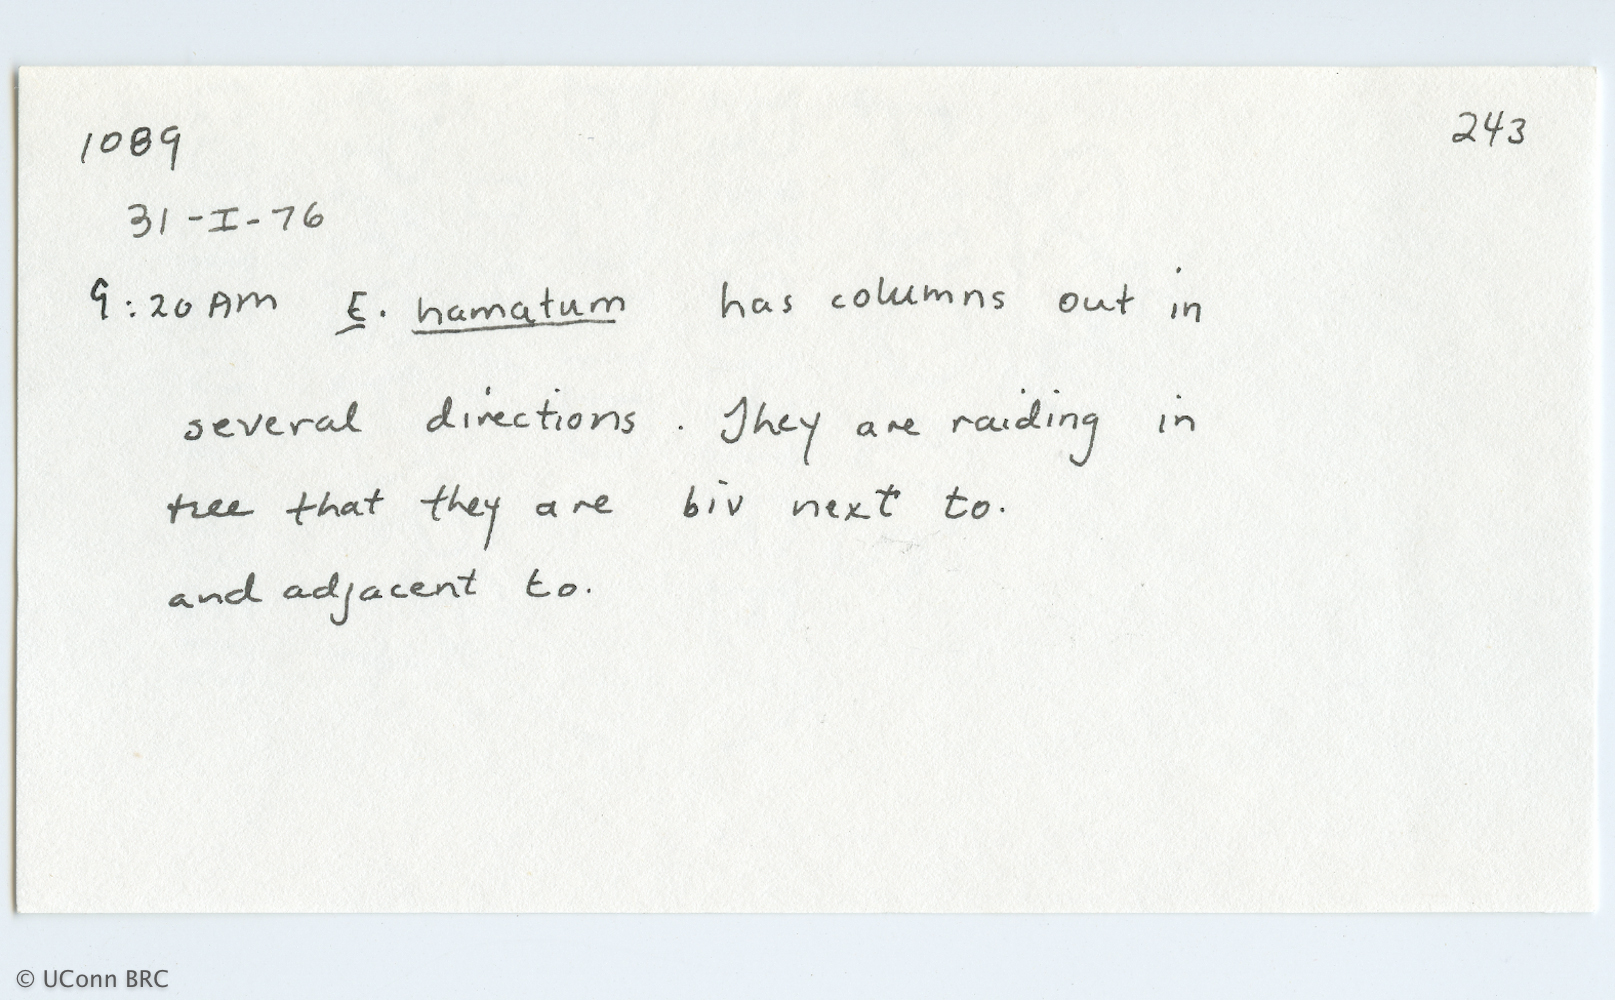 1089 243
31-I-76
9:20 AM E. hamatum has columns out in
several directions. They are raiding in
tree that they are biv next to.
and adjacent to.
© UConn BRC